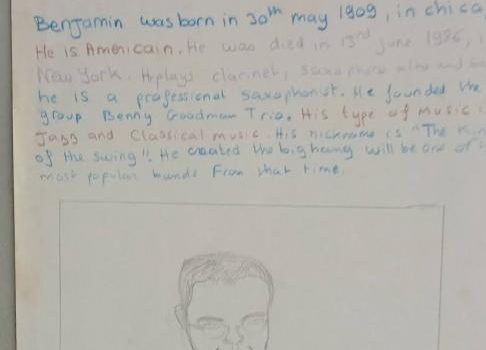 Benjamin was born in 30th may 1909, in chica
He is Américain. He was died in 13rd june 1986,
New York. H plays clarinet, saxophone alto and
he is a professional saxophonist. He founded the
group Benny Goodman Trio. His type of music i
Jazz and Classical music. His nickname is "The Kin
of the swing". He created the big will be one of
most popular bands From that time.